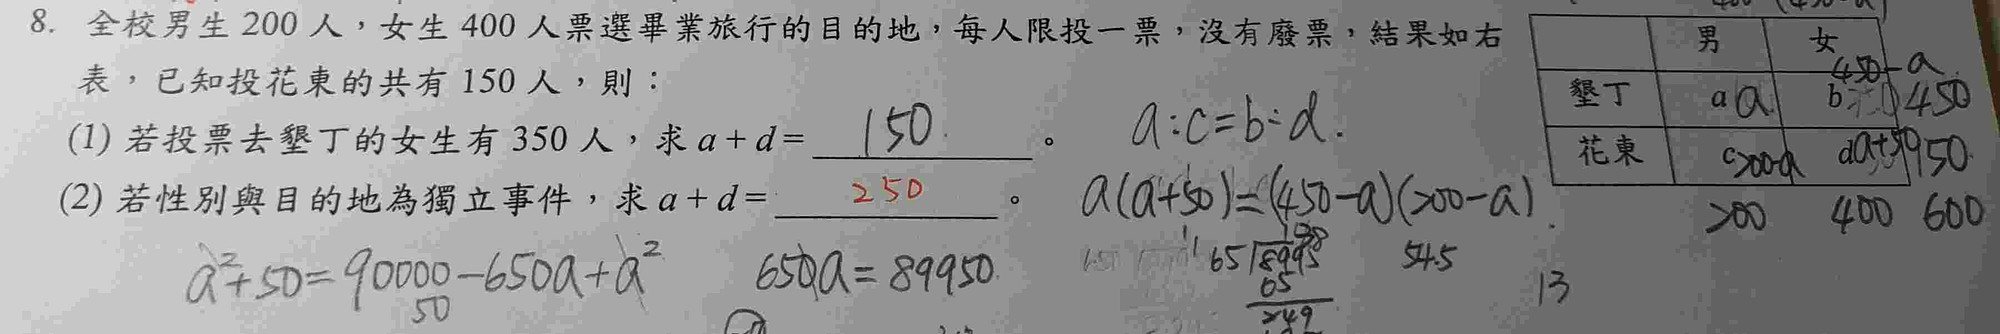 8. 全校男生 200 人，女生 400 人票選畢業旅行的目的地，每人限投一票，沒有廢票，結果如右
表，已知投花東的共有 150 人，則：
(1) 若投票去墾丁的女生有 350 人，求 a + d = 150 。
(2) 若性別與目的地為獨立事件，求 a + d = 250 。
a:c=b:d.
a(a+50)=(450-a)(200-a)
a²+50=90000-650a+a²
50
650a=89950
65 8995
65
249
54.5
13
男 女
450-a
墾丁 a a b 450
花東 c 200-a d a+50 150
200 400 600